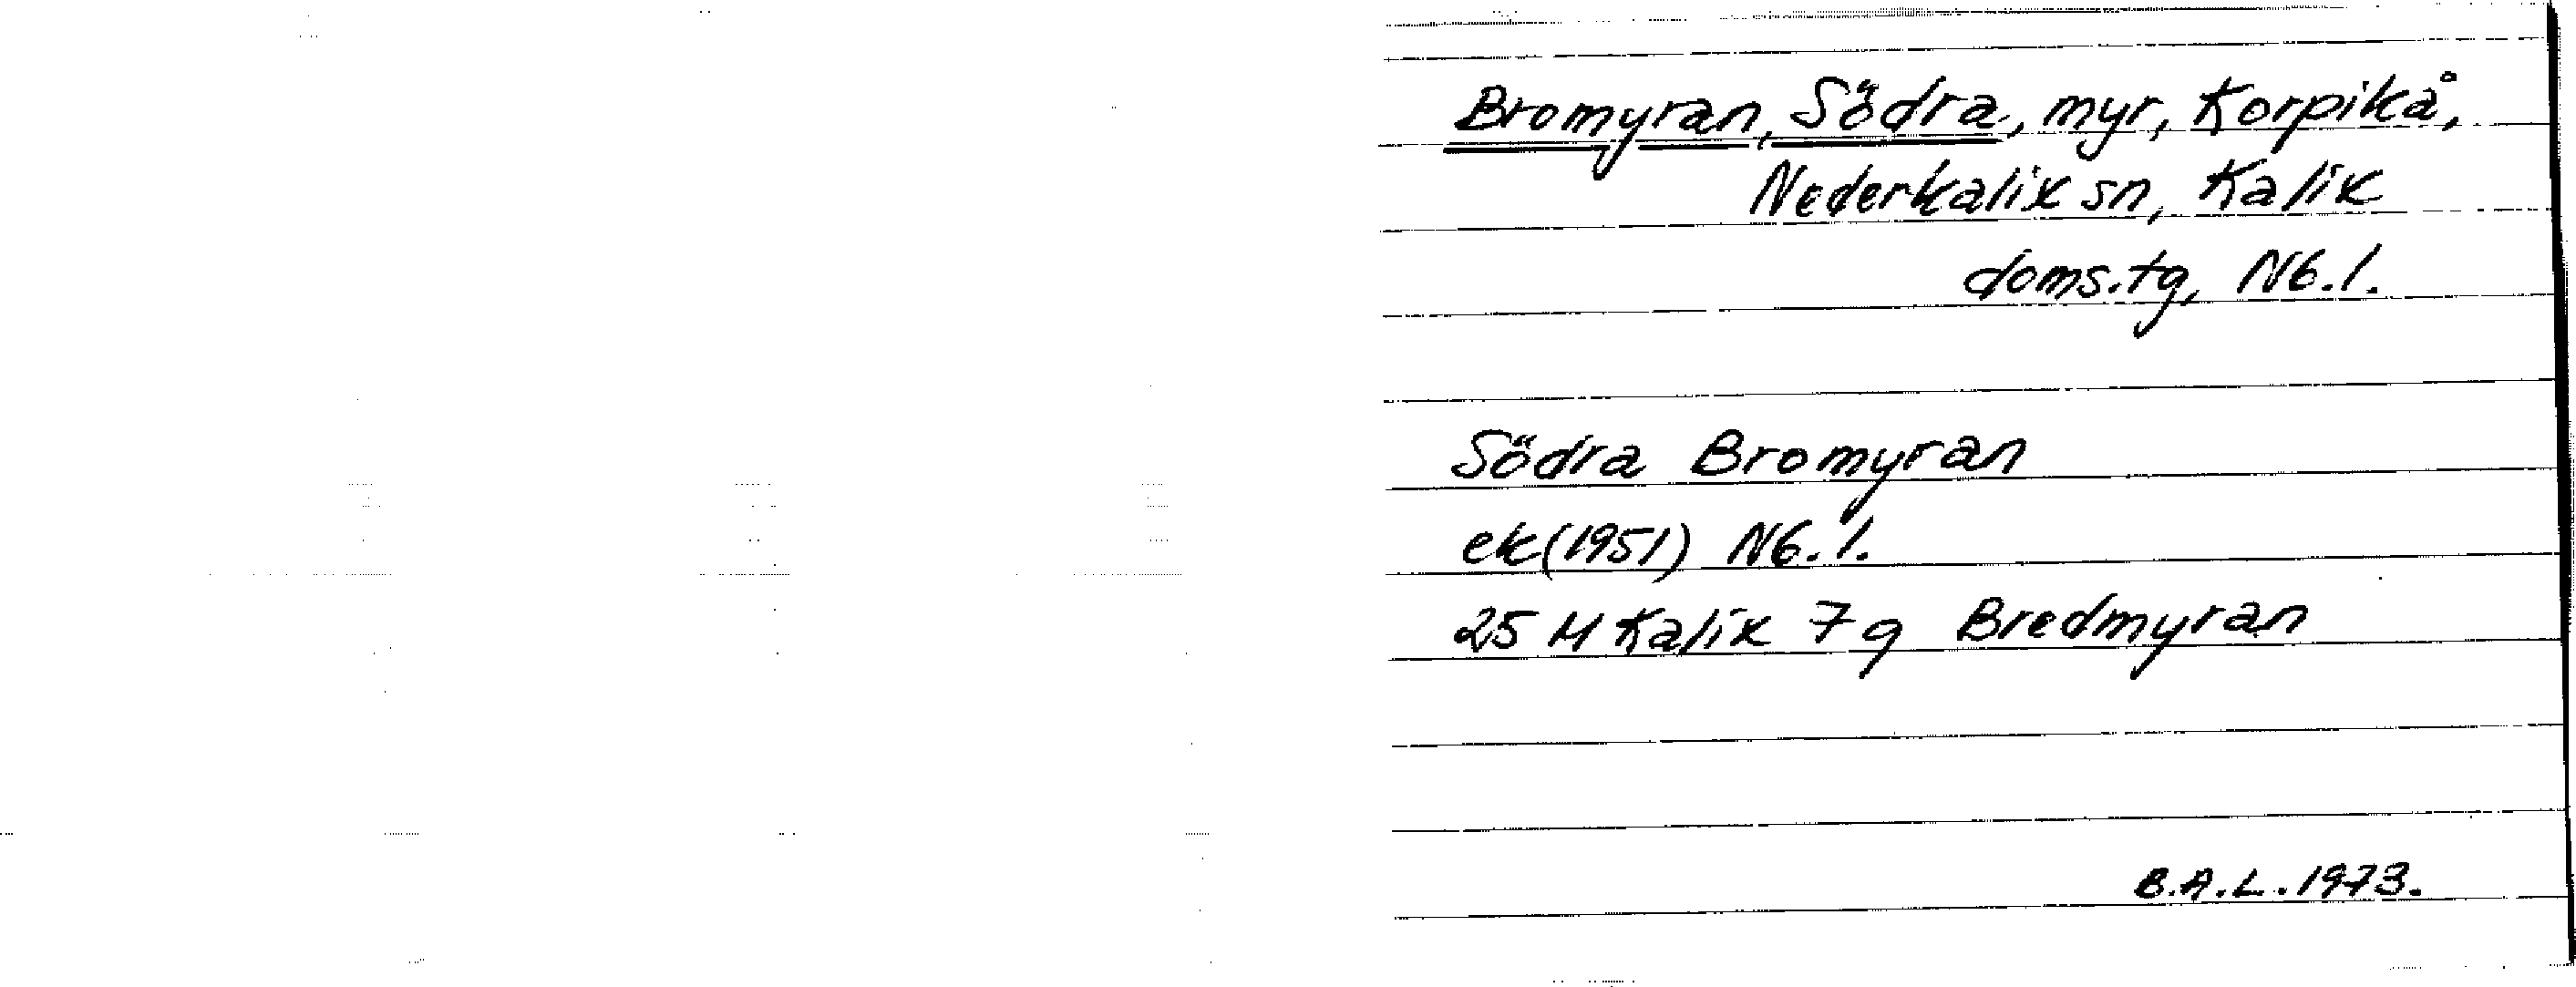 Bromyran, Södra, myr, Korpikå,
Nederkalix sn, Kalix
doms.tg, Nb.l.
Södra Bromyran
ek(1951) Nb.l.
25 M Kalix 7g Bredmyran
B.A.L. 1973.